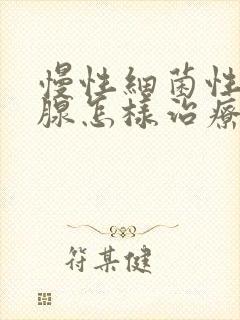 慢性細菌性
腺怎樣治療
符某健